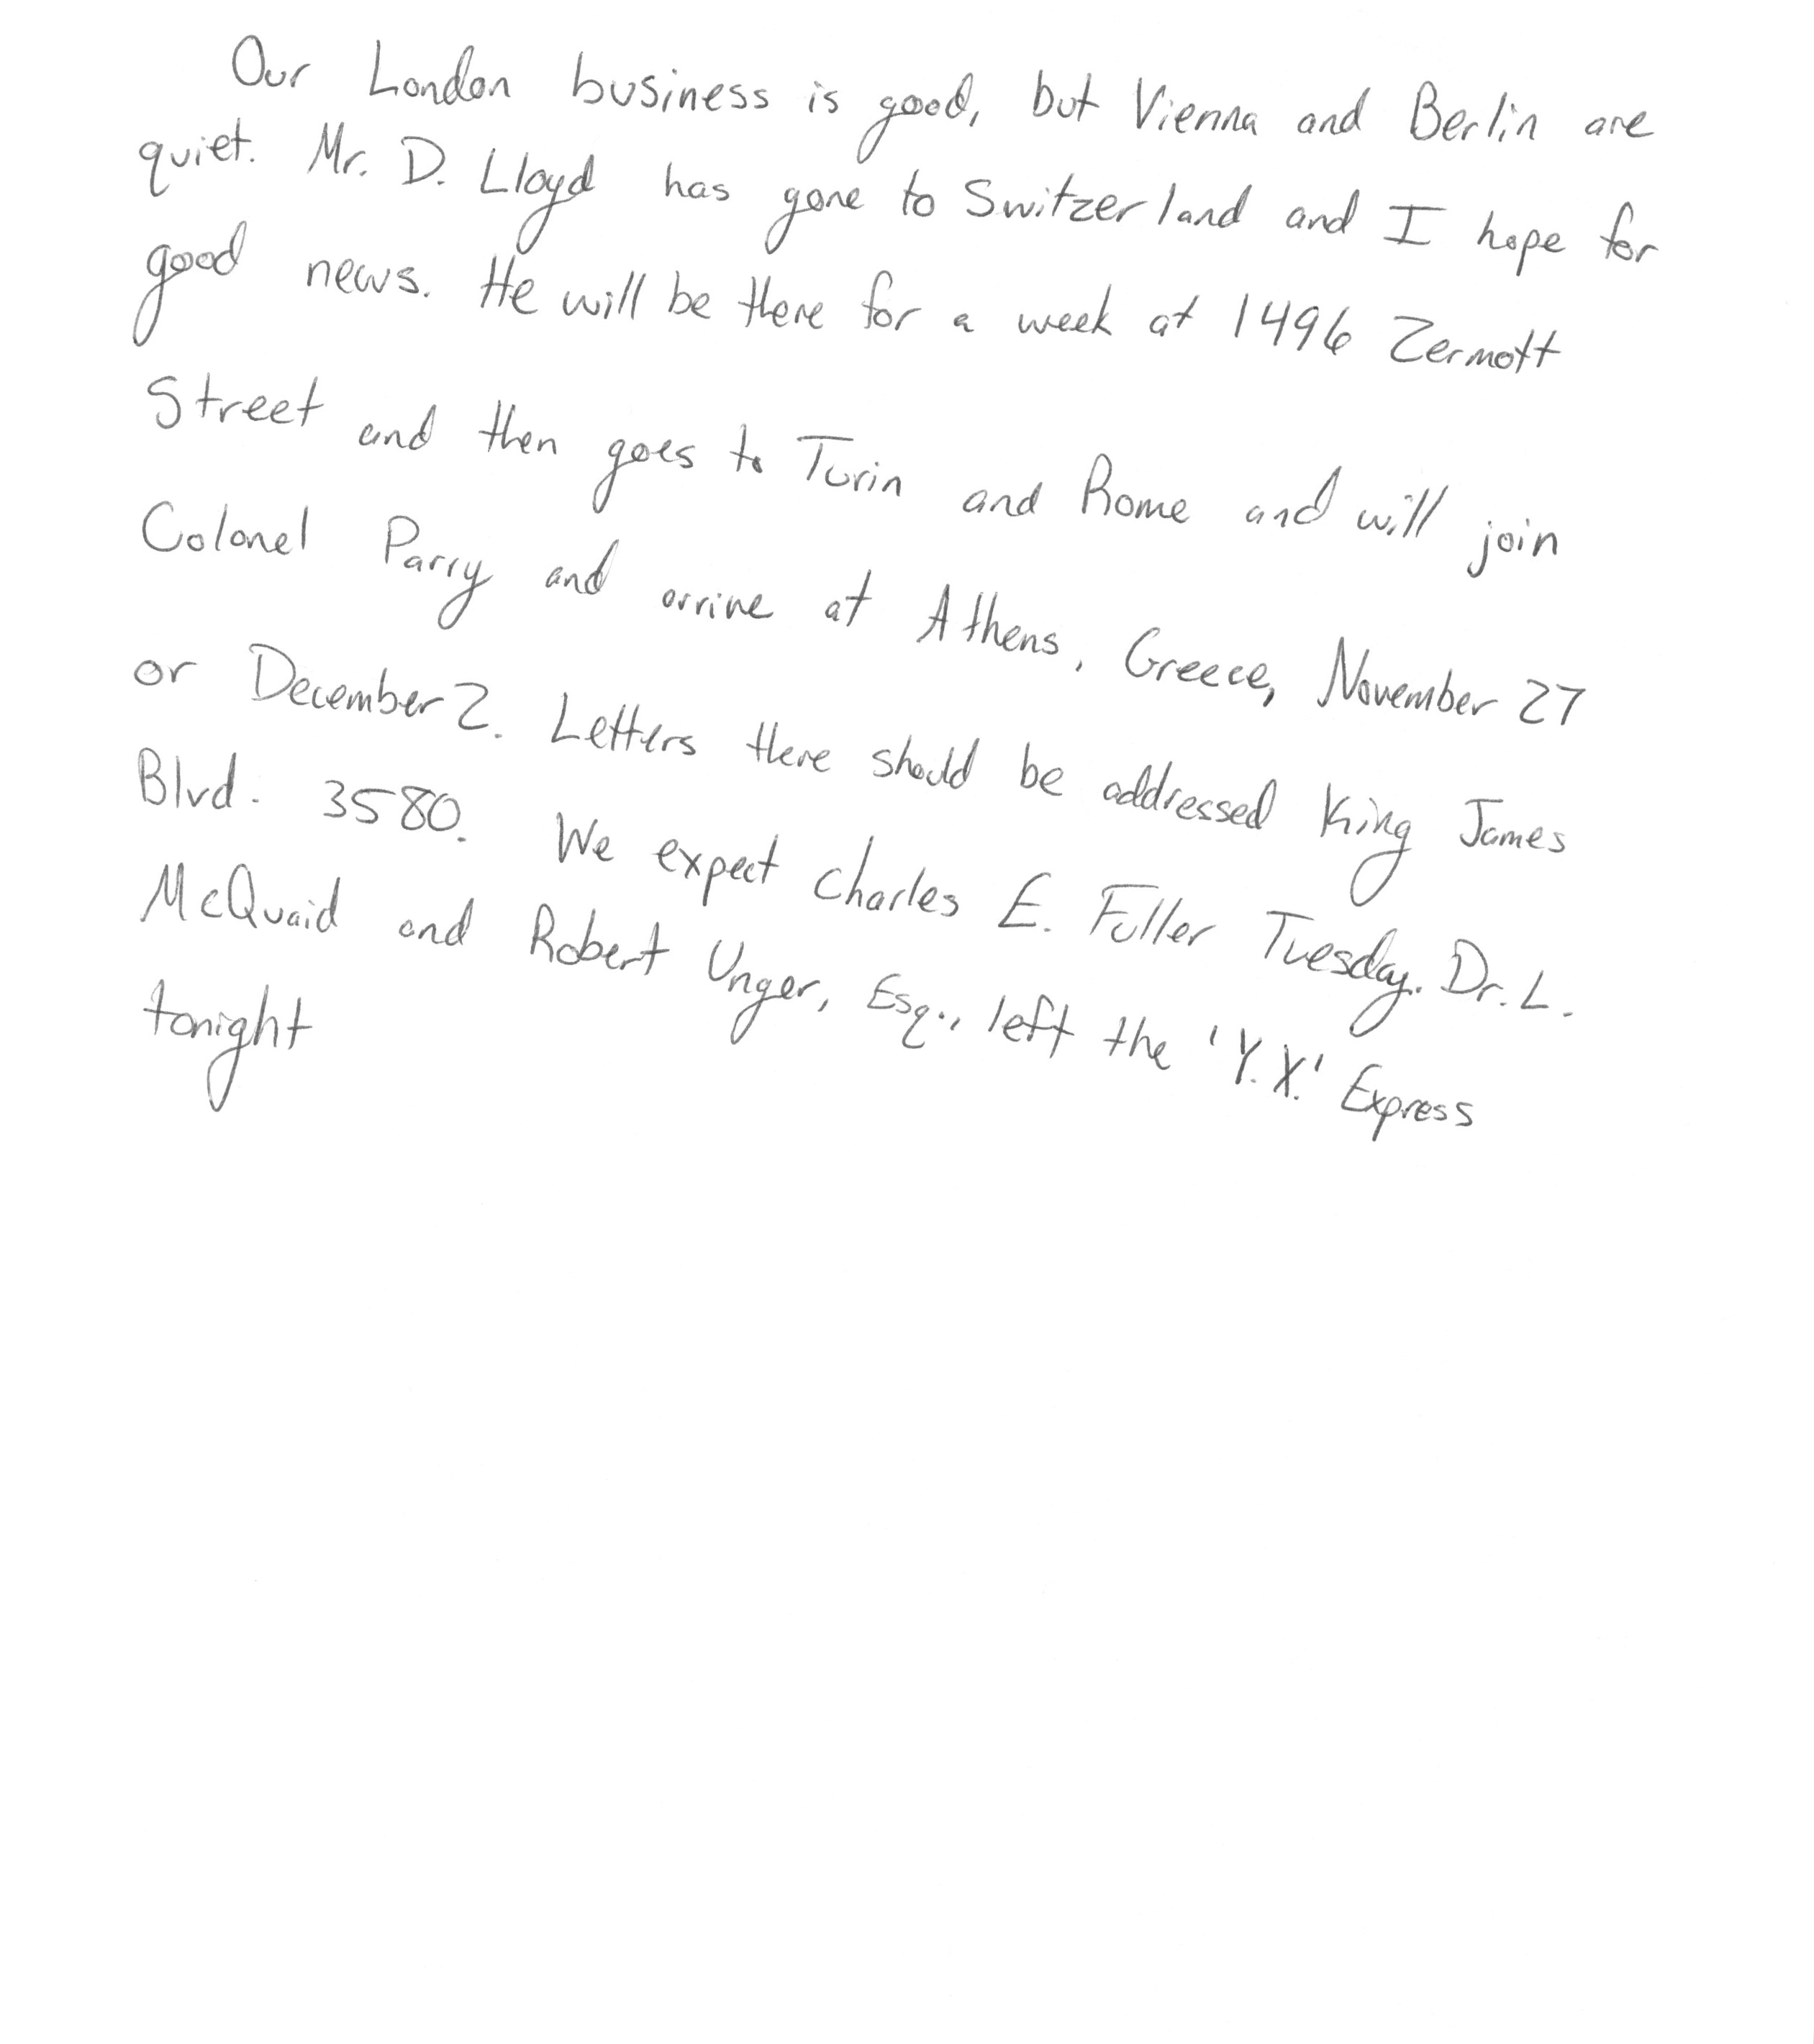 Our London business is good, but Vienna and Berlin are
quiet. Mr. D. Lloyd has gone to Switzerland and I hope for
good news. He will be there for a week at 1496 Zermott
Street and then goes to Turin and Rome and will join
Colonel Parry and arrive at Athens, Greece, November 27
or December 2. Letters there should be addressed King James
Blvd. 3580. We expect Charles E. Fuller Tuesday. Dr. L.
McQuaid and Robert Unger, Esq., left the 'Y.X.' Express
tonight